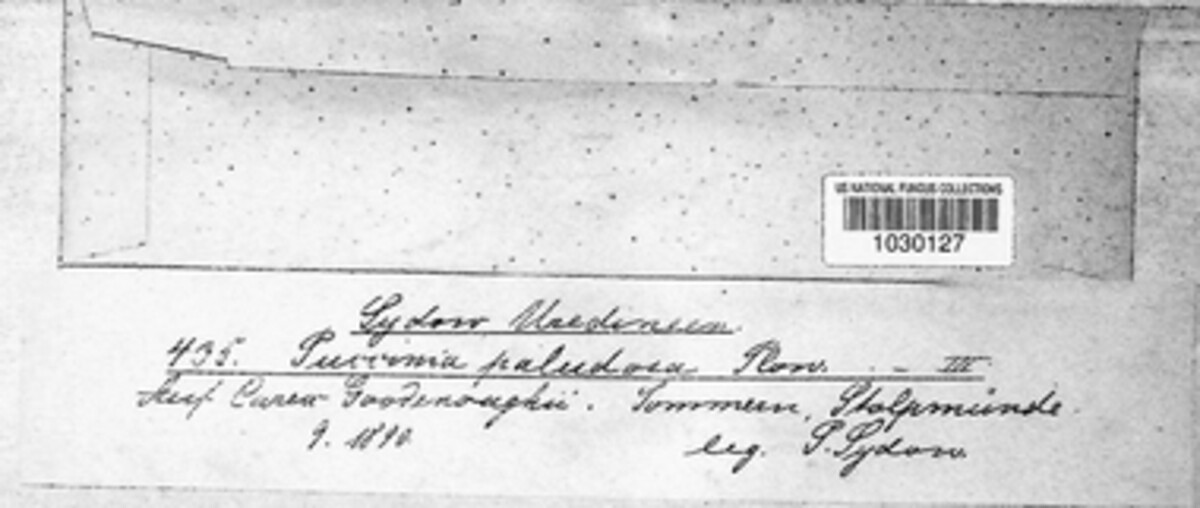 US NATIONAL FUNGUS COLLECTIONS
1030127
Sydow, Uredineen.
435. Puccinia paludosa Plow. - III.
Auf Carex Goodenoughii. Pommern, Stolpmünde.
9. 1890
leg. P. Sydow.